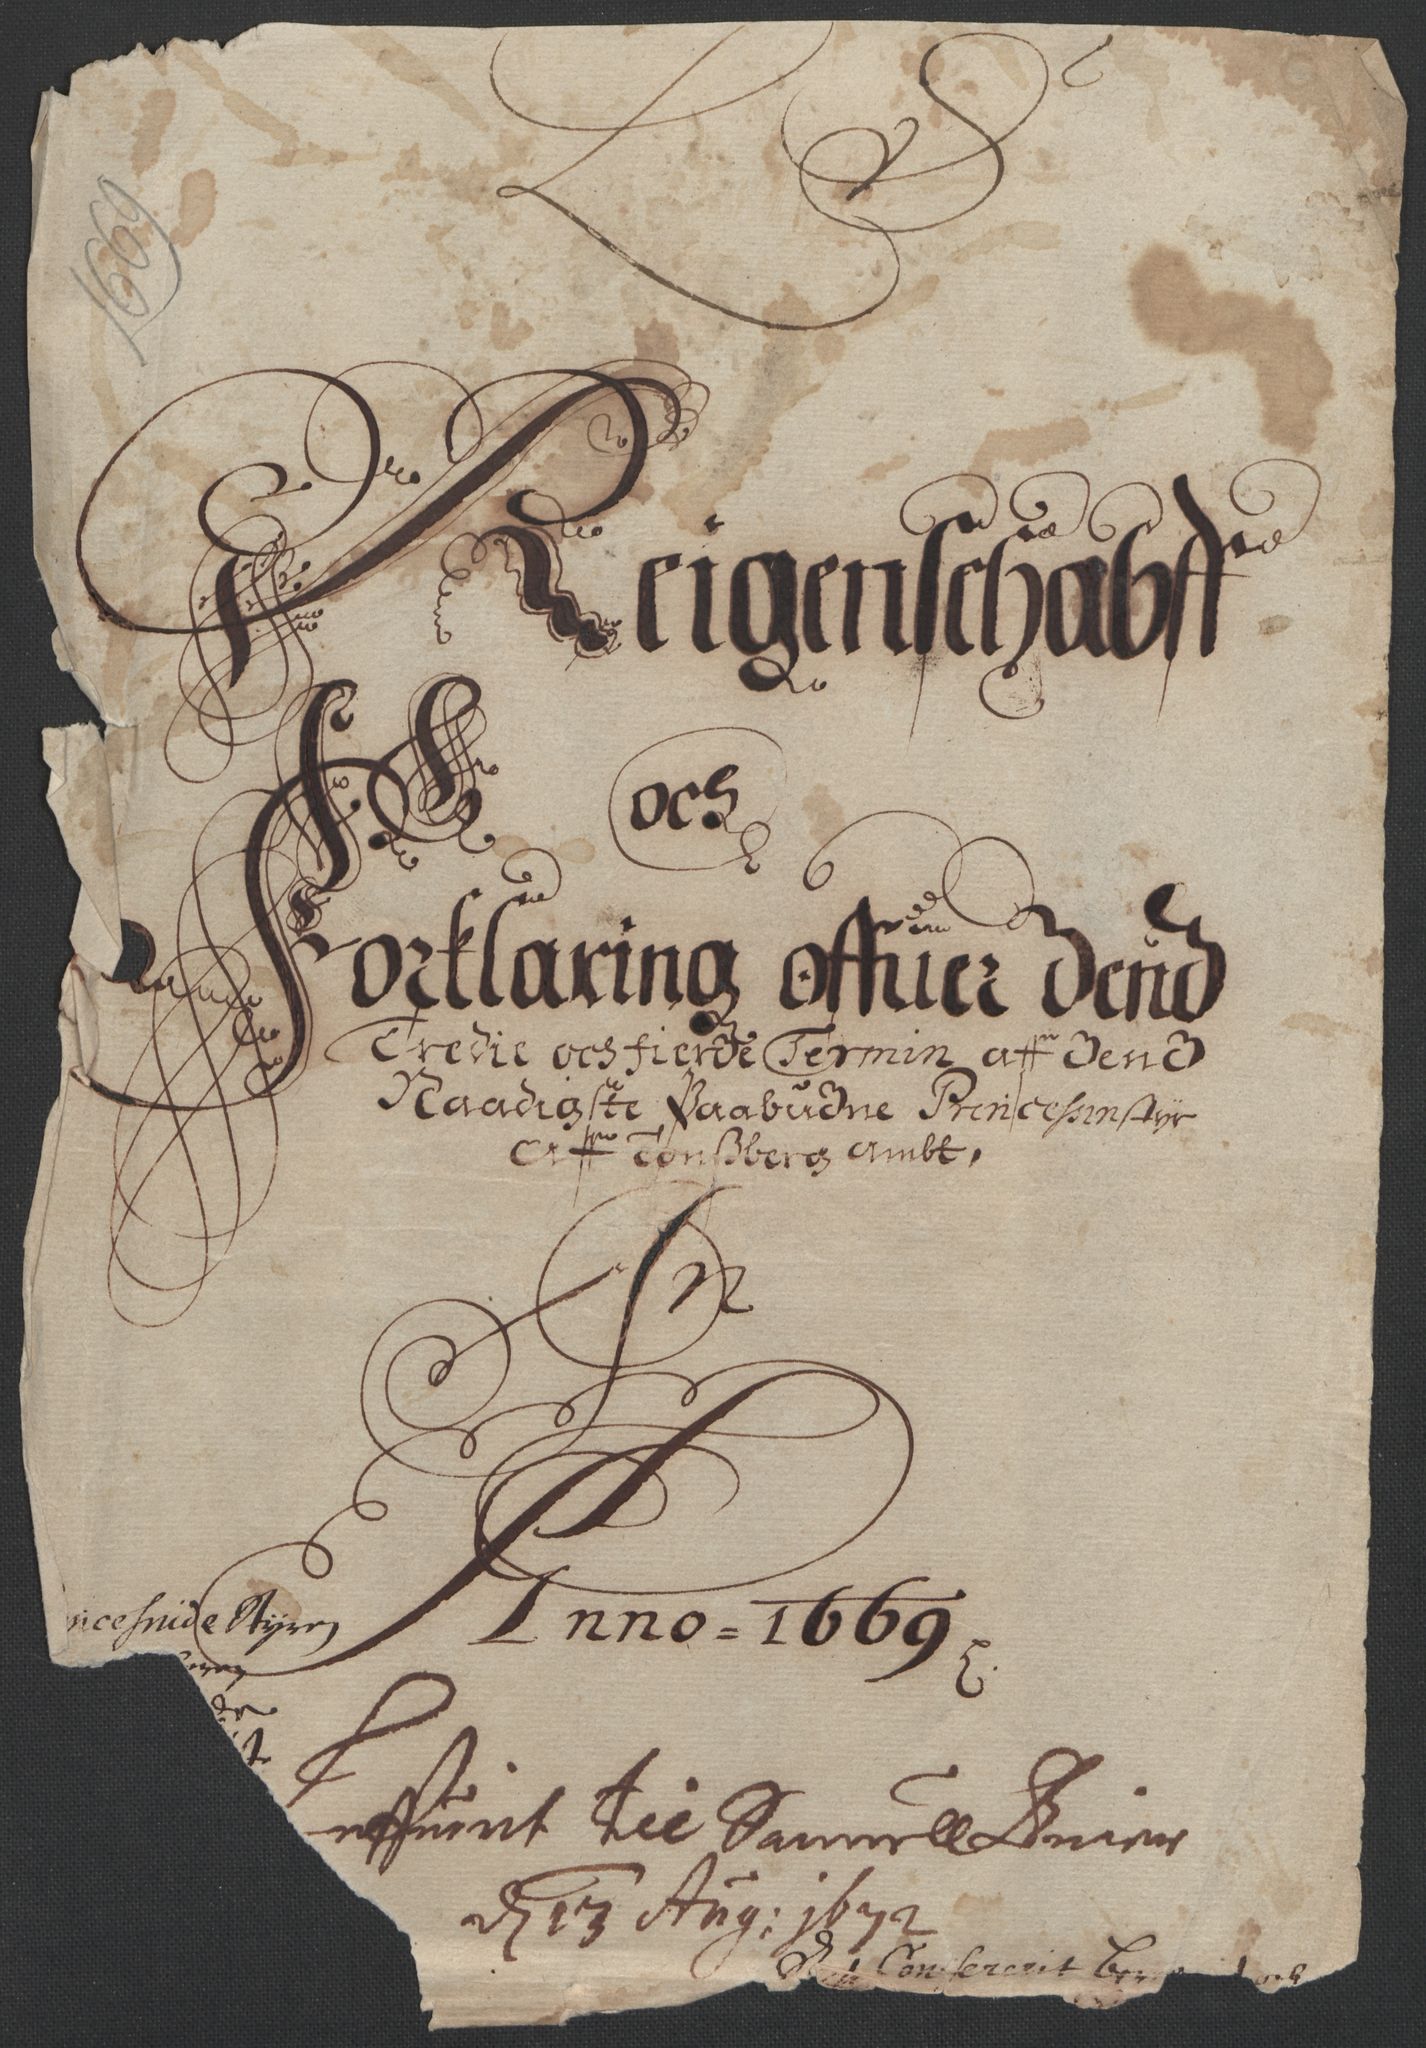 1669
Reigenschabff
och
Forklaring offuer dend
Tredie och fierde Termin aff dend
Naadigste Paabudne Princessinstyr
aff Tonsberg ambt.
In
Anno = 1669
ncesside Styren
Samuell
d 13 Aug: 1672
Confererit